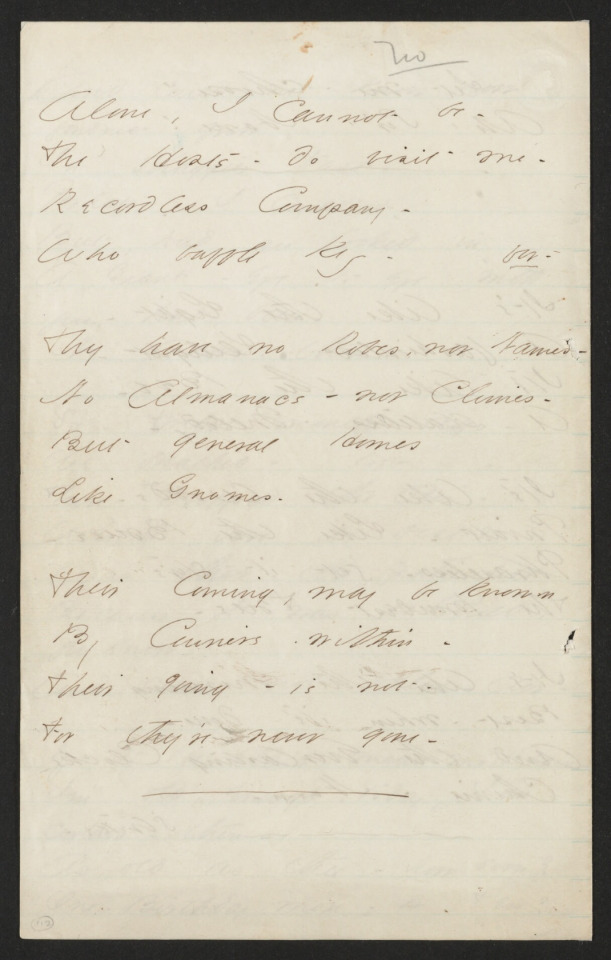 no
Alone, I cannot be -
The Hosts - do visit me -
Recordless Company -
Who baffle Key - for -
They have no Robes, nor Names -
No Almanacs - nor Climes -
But general Homes
Like Gnomes -
Their Coming, may be known
By Couriers within -
Their going - is not -
For they're never gone -